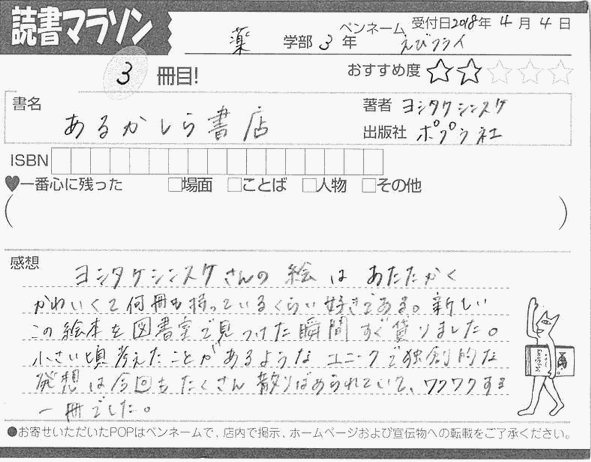 読書マラソン
受付日2018年4月4日
薬 学部 3年 ペンネーム えびフライ
3 冊目!
おすすめ度 ☆☆☆☆☆
書名 あるかしら書店
著者 ヨシタケシンスケ
出版社 ポプラ社
ISBN
♥一番心に残った □場面 □ことば □人物 □その他
感想
ヨシタケシンスケさんの絵はあたたかく
かわいくて何冊も持っているくらい好きである。新しい
この絵本を図書室で見つけた瞬間すぐ借りました。
小さい頃考えたことがあるようなユニークで独創的な
発想は今回もたくさん散りばめられていて、ワクワクする
一冊でした。
●お寄せいただいたPOPはペンネームで、店内で掲示、ホームページおよび宣伝物への転載をご了承ください。